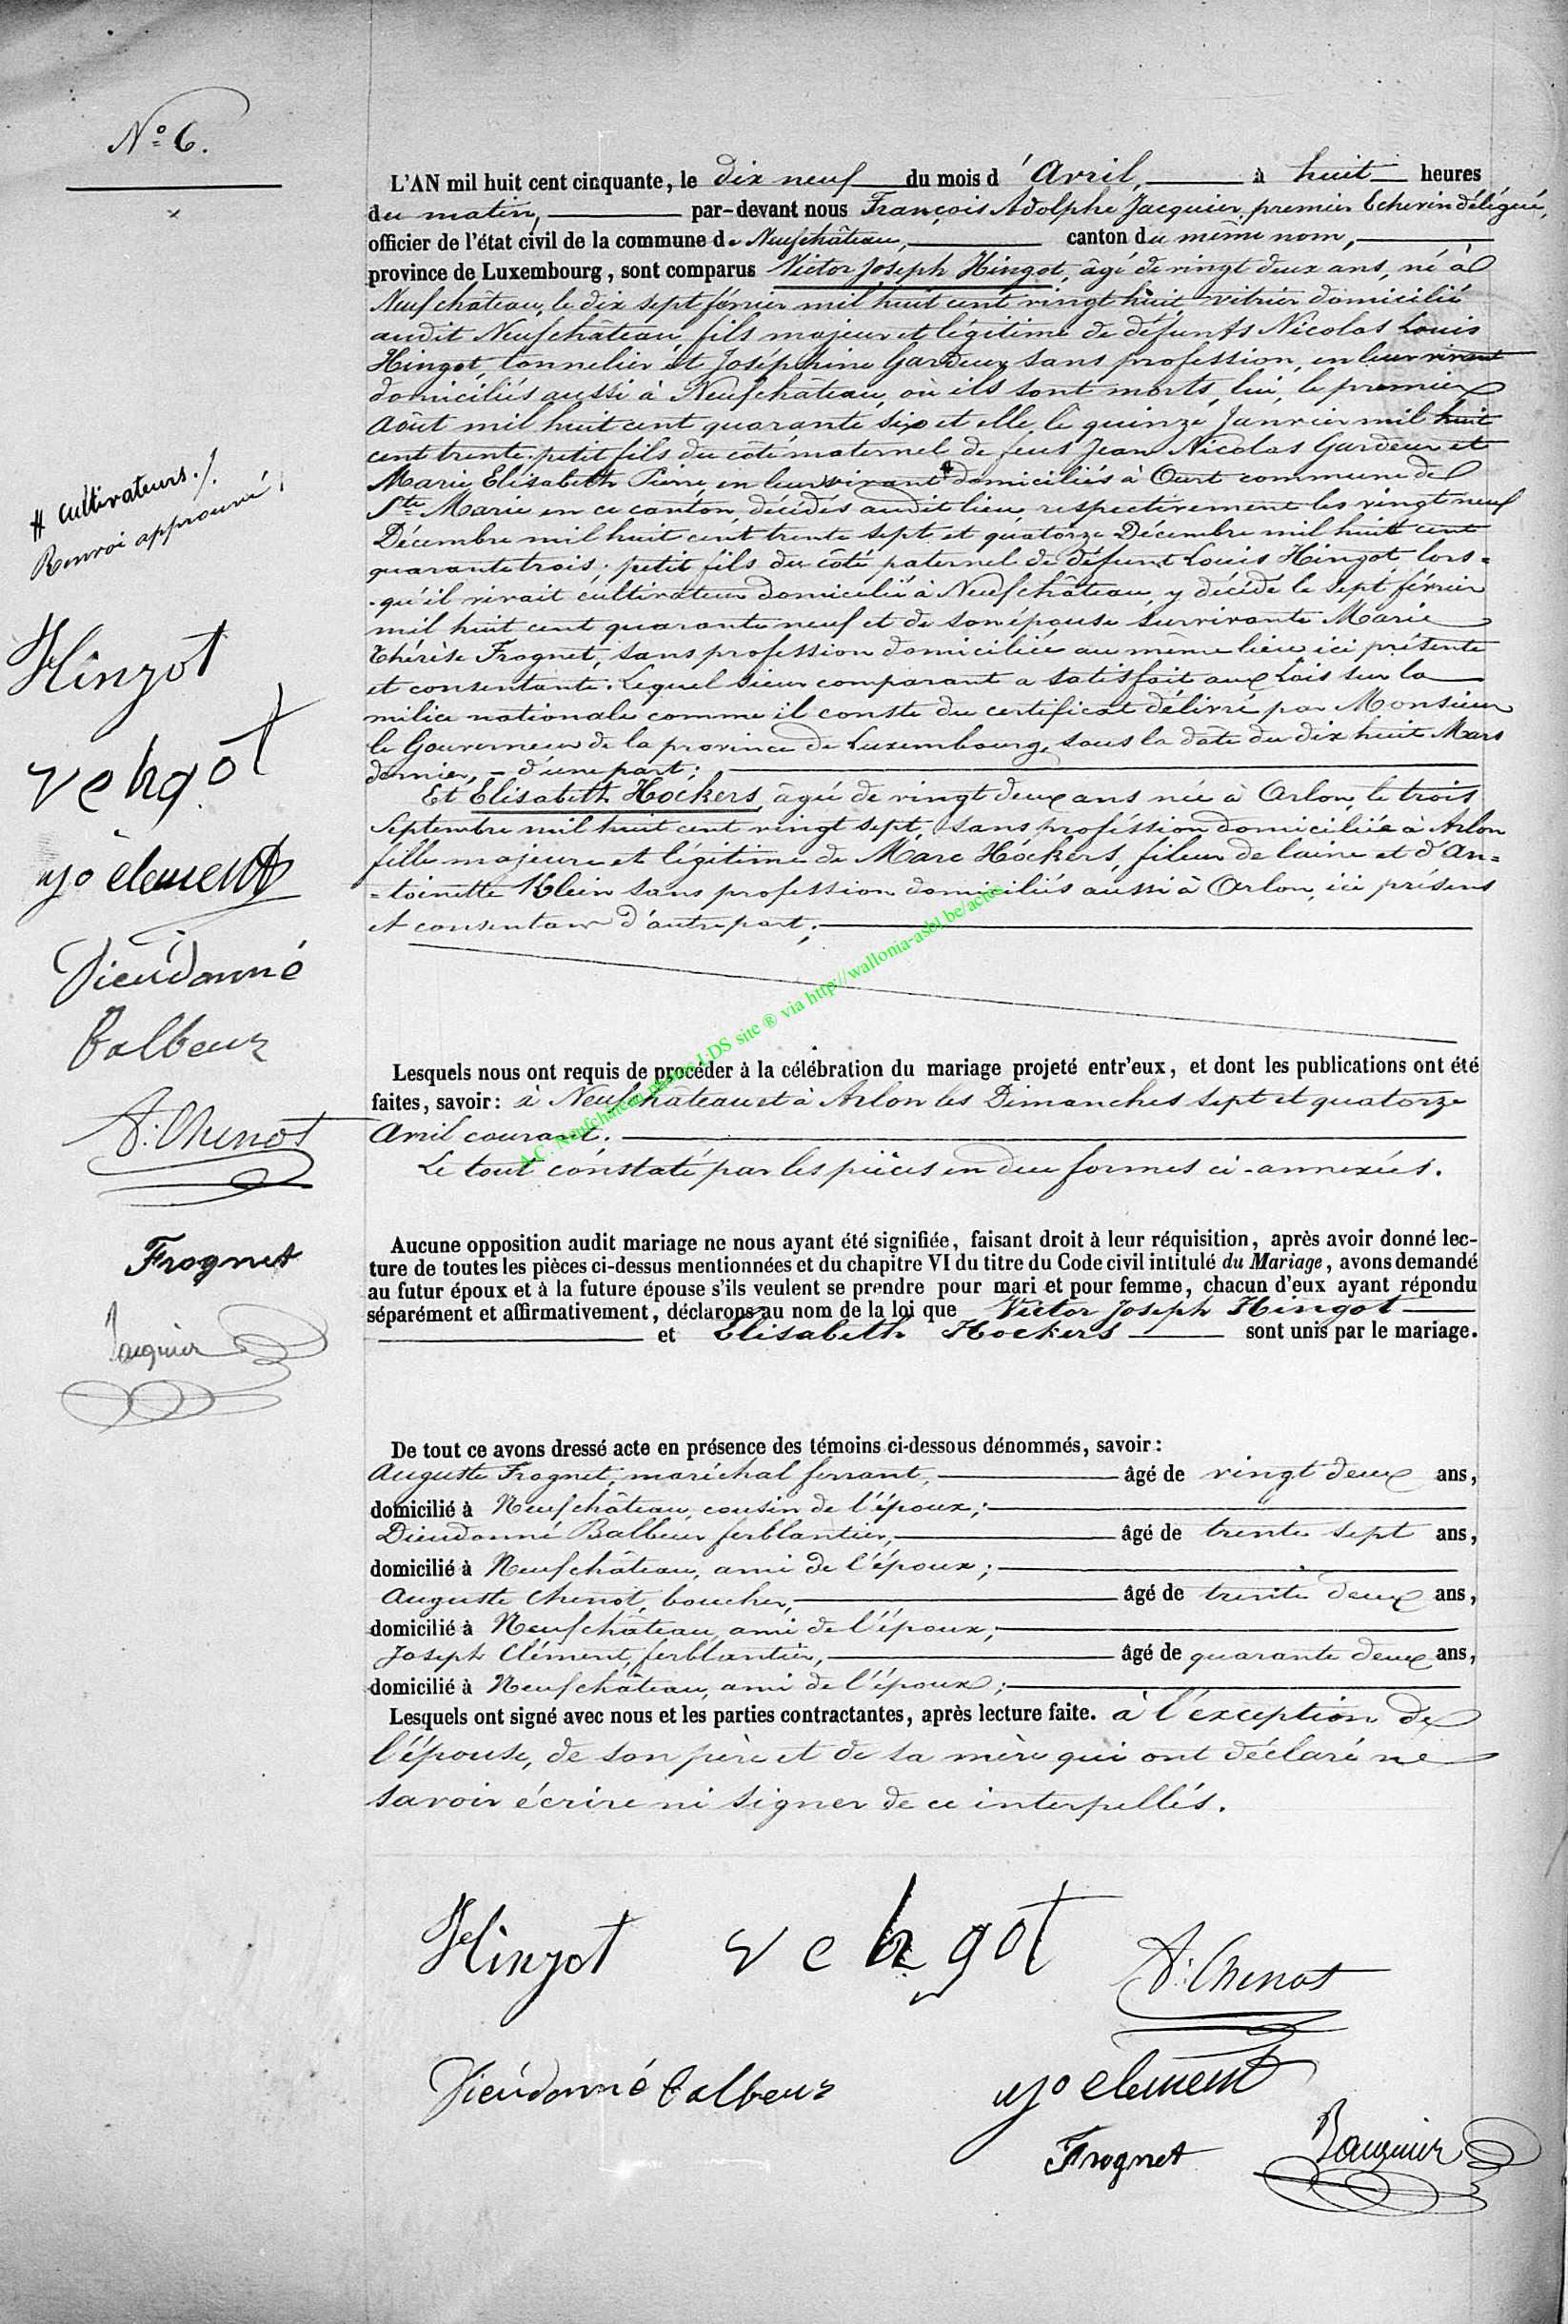 N° 6.
x
L'AN mil huit cent cinquante, le dix neuf du mois d'Avril, à huit heures
du matin, par-devant nous François Adolphe Jacquier, premier Echevin délégué,
officier de l'état civil de la commune de Neufchâteau, canton du même nom,
province de Luxembourg, sont comparus Victor Joseph Hingot, âgé de vingt deux ans, né à
Neufchâteau, le dix sept février mil huit cent vingt huit, vitrier domicilié
audit Neufchâteau, fils majeur et légitime de défunts Nicolas Louis
Hingot, tonnelier et Joséphine Gardeur, sans profession, en leur vivant
domiciliés aussi à Neufchâteau, où ils sont morts, lui, le premier
Août mil huit cent quarante six et elle le quinze Janvier mil huit
cent trente; petit fils du côté maternel de feus Jean Nicolas Gardeur et
Marie Elisabeth Pierre, en leur vivant # domiciliés à Ourt commune de
Ste Marie en ce canton, décédés audit lieu, respectivement les vingt neuf
Décembre mil huit cent trente sept et quatorze Décembre mil huit cent
quarante trois; petit fils du côté paternel de défunt Louis Hingot lors=
qu'il vivait cultivateur domicilié à Neufchâteau, y décédé le sept février
mil huit cent quarante neuf et de son épouse survivante Marie
Thérèse Frognet, sans profession domiciliée au même lieu ici présente
et consentante. Lequel sieur comparant a satisfait aux Lois sur la
milice nationale comme il conste du certificat délivré par Monsieur
le Gouverneur de la province de Luxembourg, sous la date du dix huit Mars
dernier, - d'une part;
Et Elisabeth Hockers, âgée de vingt deux ans née à Arlon, le trois
Septembre mil huit cent vingt sept, sans profession domiciliée à Arlon
fille majeure et légitime de Marc Hockers, fileur de laine et d'An=
=toinette Klein sans profession domiciliés aussi à Arlon, ici présens
et consentans d'autre part;
# cultivateurs ./.
Renvoi approuvé!
Hingot
vehgot
jo clement
Dieudonné
Balbeur
A. Chenot
Frognet
Jacquier
Lesquels nous ont requis de procéder à la célébration du mariage projeté entr'eux, et dont les publications ont été
faites, savoir: à Neufchâteau et à Arlon les Dimanches sept et quatorze
Avril courant.
Le tout constaté par les pièces en due formes ci-annexées.
Aucune opposition audit mariage ne nous ayant été signifiée, faisant droit à leur réquisition, après avoir donné lec-
ture de toutes les pièces ci-dessus mentionnées et du chapitre VI du titre du Code civil intitulé du Mariage, avons demandé
au futur époux et à la future épouse s'ils veulent se prendre pour mari et pour femme, chacun d'eux ayant répondu
séparément et affirmativement, déclarons au nom de la loi que Victor Joseph Hingot
et Elisabeth Hockers sont unis par le mariage.
De tout ce avons dressé acte en présence des témoins ci-dessous dénommés, savoir:
Auguste Frognet, maréchal ferrant, âgé de vingt deux ans,
domicilié à Neufchâteau, cousin de l'époux;
Dieudonné Balbeur ferblantier, âgé de trente sept ans,
domicilié à Neufchâteau, ami de l'époux;
Auguste Chenot, boucher, âgé de trente deux ans,
domicilié à Neufchâteau, ami de l'époux;
Joseph Clément, ferblantier, âgé de quarante deux ans,
domicilié à Neufchâteau, ami de l'époux;
Lesquels ont signé avec nous et les parties contractantes, après lecture faite. à l'exception de
l'épouse, de son père et de sa mère qui ont déclaré ne
savoir écrire ni signer de ce interpellés.
Hingot vehgot A. Chenot
Dieudonné Balbeur jo clement
Frognet Jacquier
A.C. Neufchâteau photos LDS site ® via http://wallonia-asbl.be/actes